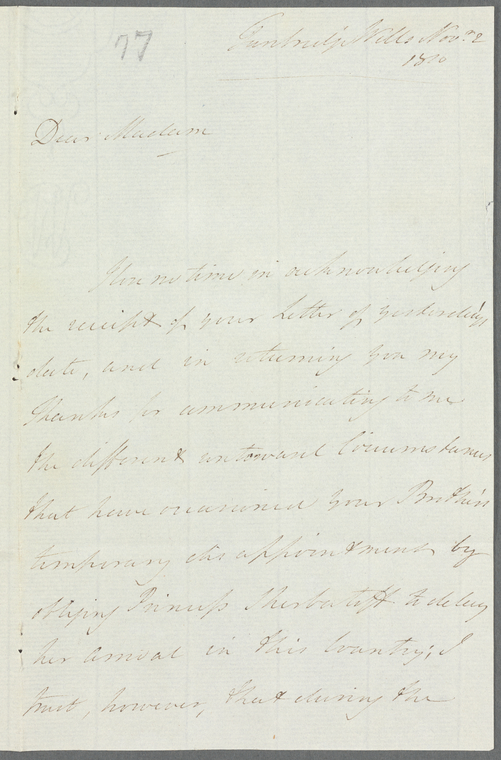 77
Tunbridge Wells Novr 2
1810
Dear Madam
I lose no time in acknowledging
the receipt of your Letter of yesterday's
date, and in returning you my
thanks for communicating to me
the different untoward Circumstances
that have occasioned your Brother's
temporary disappointment by
obliging Princess Sherbatoff to delay
her arrival in this Country; I
trust, however, that during the